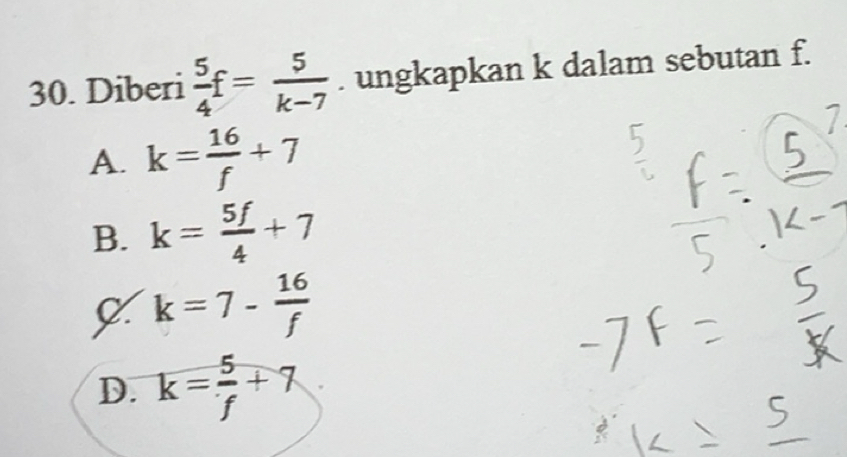 30. Diberi 5/4 f = 5/(k−7) . ungkapkan k dalam sebutan f.
A. k = 16/f + 7
B. k = 5f/4 + 7
C. k = 7 - 16/f
D. k = 5/f + 7
f/5 = 5/(k-7)
-7f =
k = 5